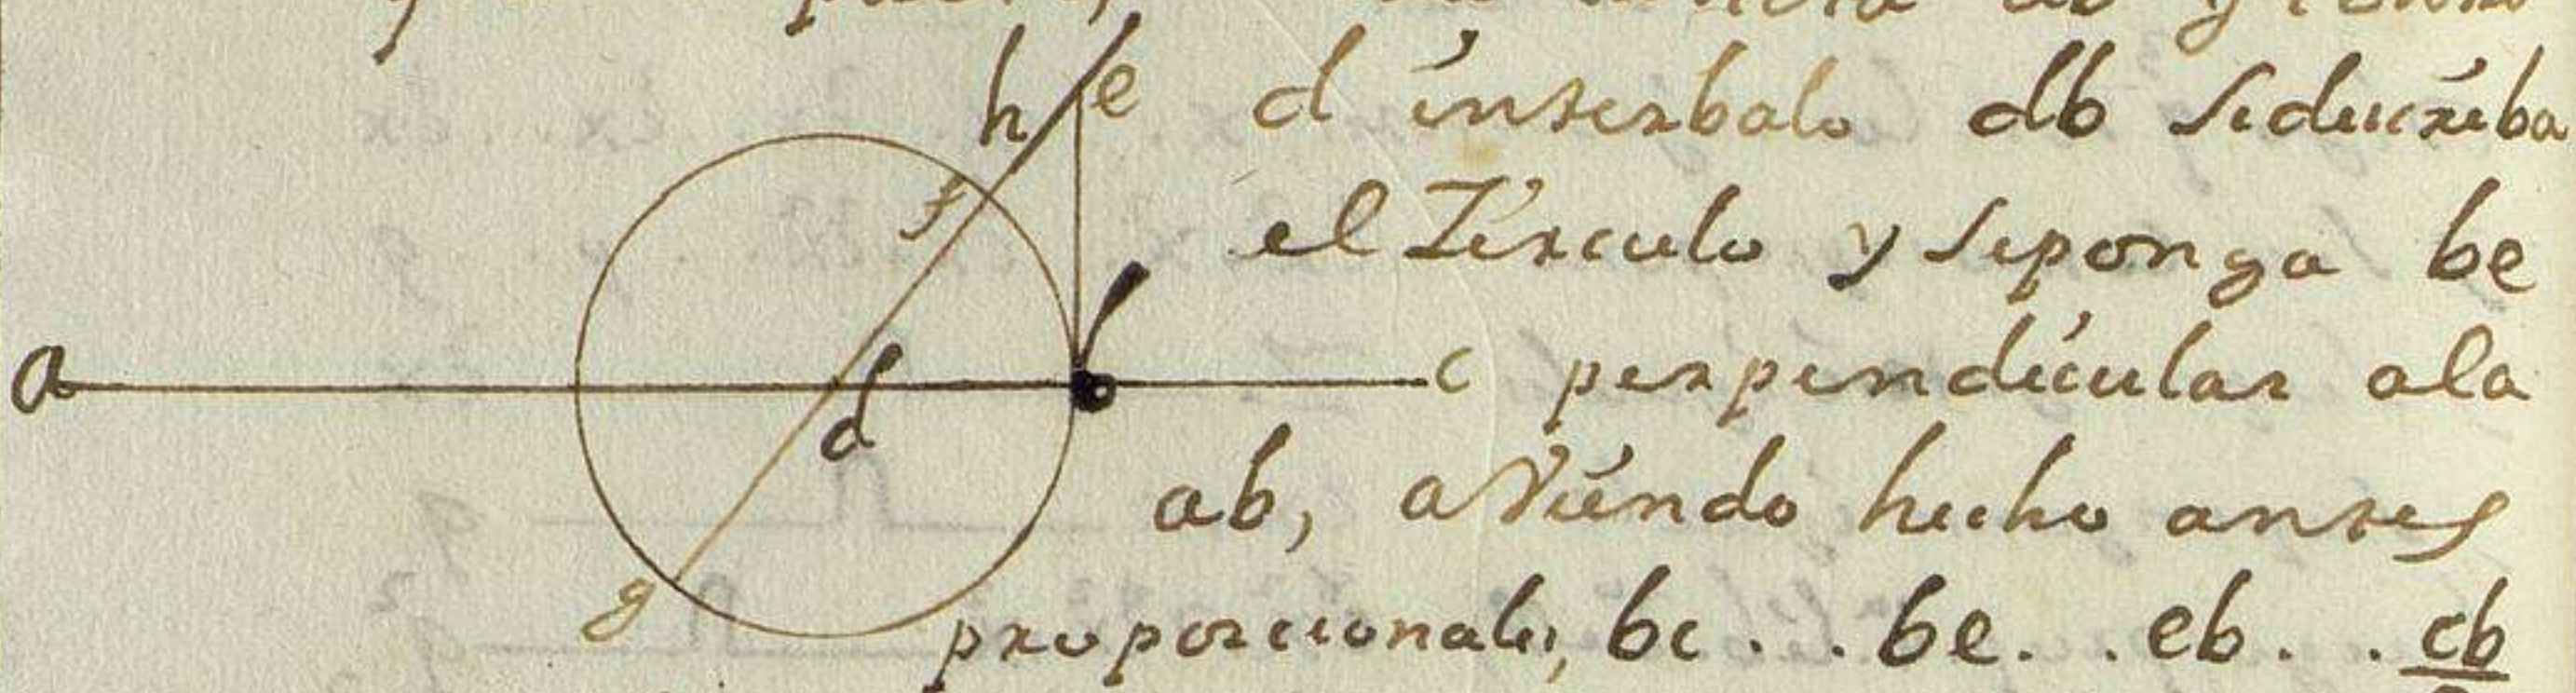 h e d interbalo db sedescriba
f el Zirculo y se ponga be
a d b c perpendicular ala
ab, aviendo hecho antes
g proporcionales, bc . . be . . eb . . cb